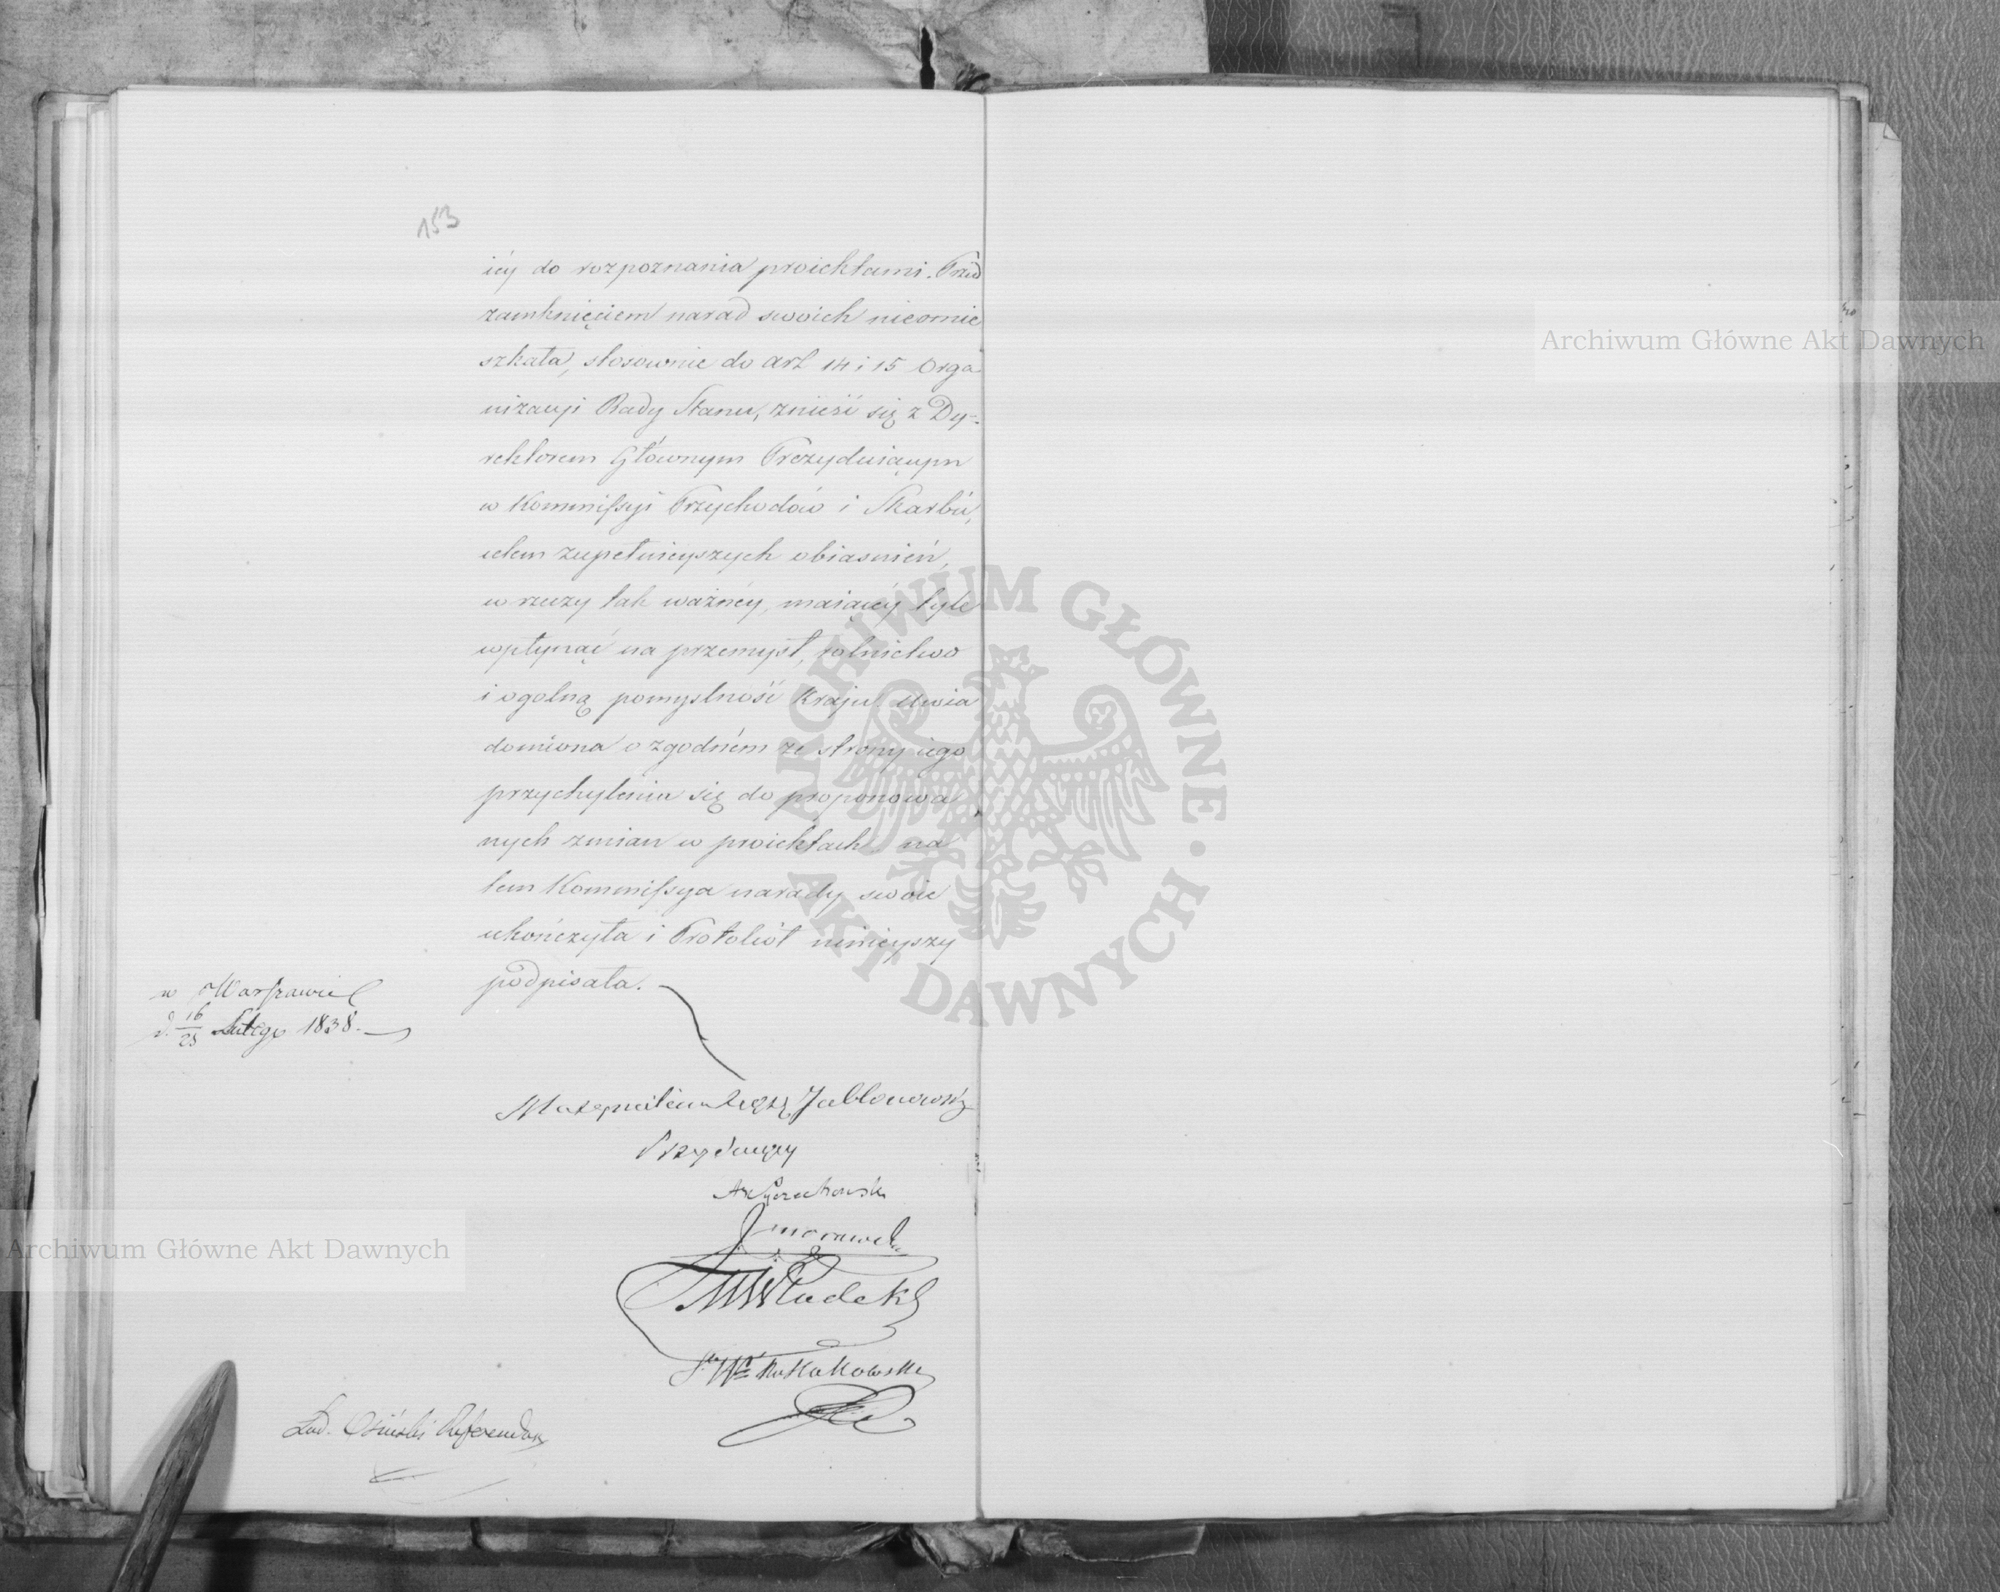 153
iéy do rozpoznania proiektami. Przed
zamknięciem narad swoich nieomie
szkała, stosownie do art 14 i 15 Orga
nizacyi Rady Stanu, znieść się z Dy-
rektorem Głównym Prezyduiącym
w Kommissyi Przychodów i Skarbu,
celem zupełnieyszych obiaśnień,
w rzeczy tak ważnéy, maiącéy tyle
wpłynąć na przemysł, rolnictwo
i ogólną pomyślność Kraju. Uwia
domiona o zgodném ze strony iego
przychyleniu się do proponowa
nych zmian w proiektach, na
tem Kommissya narady swoie
ukończyła i Protokół ninieyszy
podpisała.
w Warszawie
d. 16/28 Lutego 1838.
Maxymilian Xiążę Jabłonowski
Prezyduiący
Morawski
Kładek
Rakałowski
Lud. Osiński Referendarz
Archiwum Główne Akt Dawnych
Archiwum Główne Akt Dawnych
ARCHIWUM GŁÓWNE · AKT DAWNYCH ·